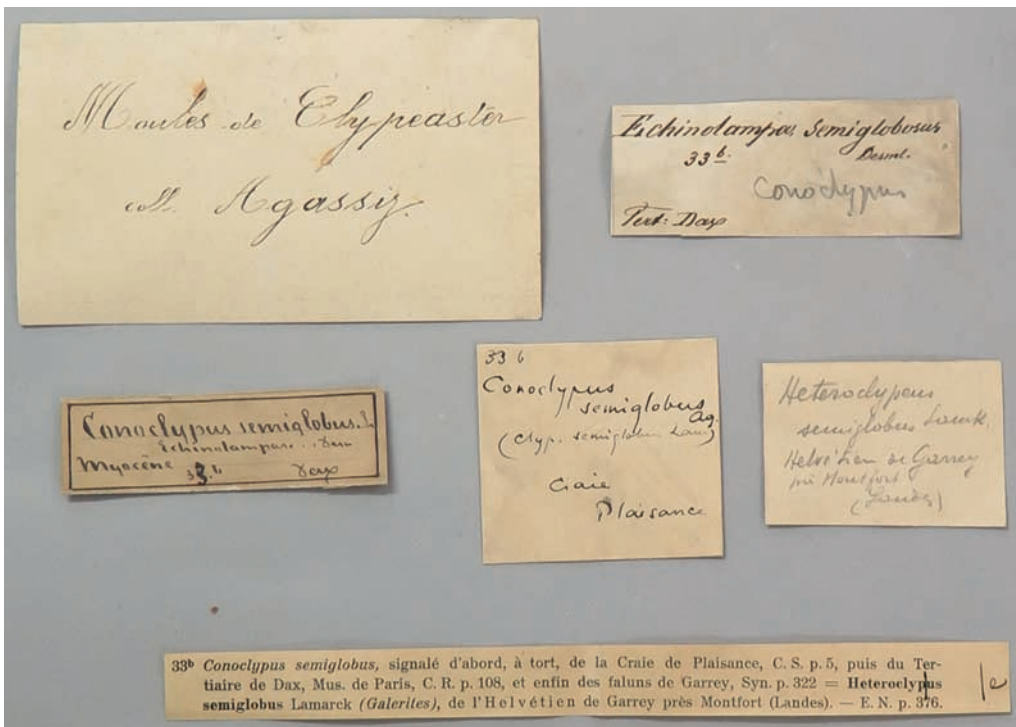 Moules de Clypeaster
coll. Agassiz.
Echinolampas Semiglobosus
33 b. Desml.
Conoclypus
Tert: Dax
Conoclypus semiglobus. L
Echinolampas
Myocène 33. b Dax
33 b
Conoclypus
semiglobus Ag.
(Clyp. semiglobus Lam)
Craie
Plaisance
Heteroclypeus
semiglobus Lamk.
Helvétien de Garrey
près Montfort
(Landes)
33b Conoclypus semiglobus, signalé d'abord, à tort, de la Craie de Plaisance, C. S. p. 5, puis du Ter-
tiaire de Dax, Mus. de Paris, C. R. p. 108, et enfin des faluns de Garrey, Syn. p. 322 = Heteroclypus
semiglobus Lamarck (Galerites), de l'Helvétien de Garrey près Montfort (Landes). — E. N. p. 376.
e